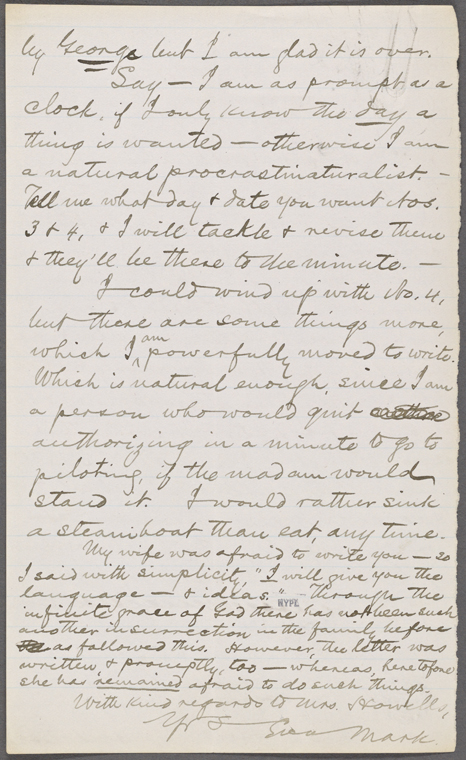 by George but I am glad it is over.
Say — I am as prompt as a
clock, if I only know the day a
thing is wanted — otherwise I am
a natural procrastinaturalist. —
Tell me what day & date you want Nos.
3 & 4, & I will tackle & revise them
& they'll be there to the minute. —
I could wind up with No. 4,
but there are some things more,
which I am powerfully moved to write.
Which is natural enough, since I am
a person who would quit
authorizing in a minute to go to
piloting, if the madam would
stand it. I would rather sink
a steamboat than eat, any time.
My wife was afraid to write you — so
I said with simplicity, "I will give you the
language — & ideas." — Through the
NYPL
infinite grace of God there has not been such
another insurrection in the family before
as followed this. However, the letter was
written & promptly, too — whereas, heretofore
she has remained afraid to do such things.
With kind regards to Mrs. Howells,
Yrs Ever
Mark.